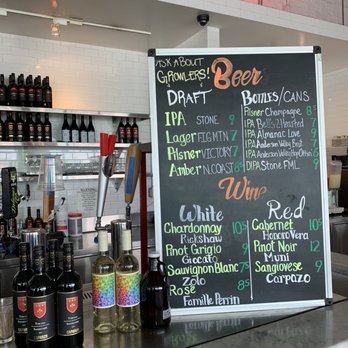 ASK ABOUT
GROWLERS!
Beer
DRAFT
IPA STONE 9
Lager FIGMTN 7
Pilsner VICTORY 7
Amber N.COAST 8
BOTTLES/CANS
Pilsner Champagne 8
IPA Bells 2 Hearted 7
IPA Almanac Love 9
IPA Anderson Valley
IPA Anderson Valley
DIPA Stone FML 9
Wine
White
Chardonnay 10
Rickshaw
Pinot Grigio 9
Giocato
Sauvignon Blanc 7
Zolo
Rosé 8
Famille Perrin
Red
Cabernet 10
Honoro Vera
Pinot Noir 12
Muni
Sangiovese 9
Carpazo